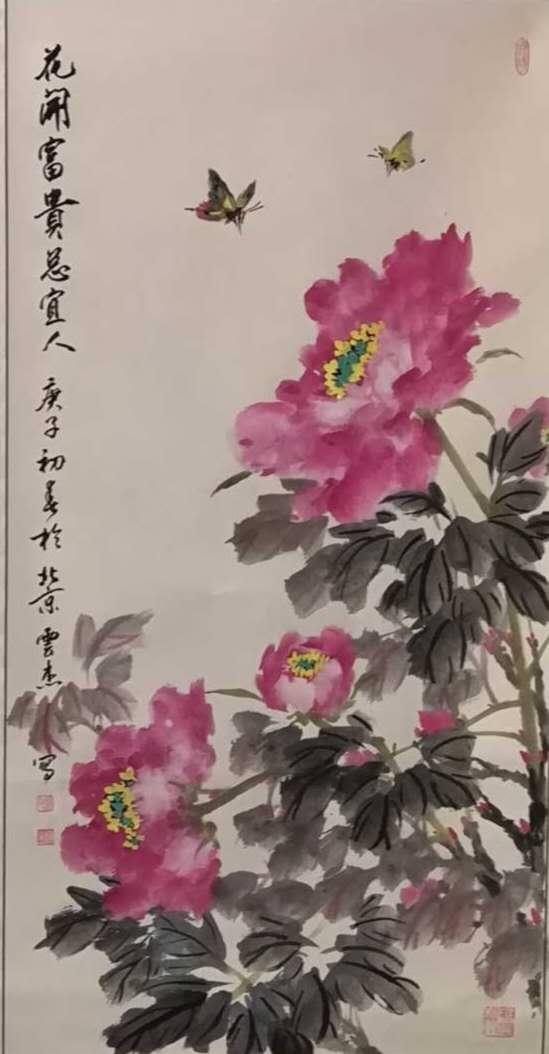 花開富貴總宜人 庚子初春於北京 雲杰寫